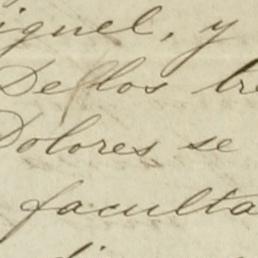 iguel, y
Dellos tre
Dolores se
faculta